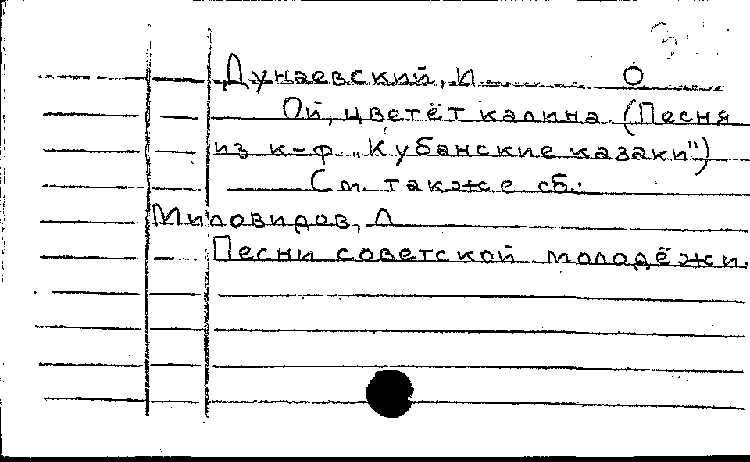 Дунаевский, И. О
Ой, цветёт калина (Песня
из к-ф „Кубанские казаки")
См. также сб.:
Миловидов, Л
Песни советской молодёжи.